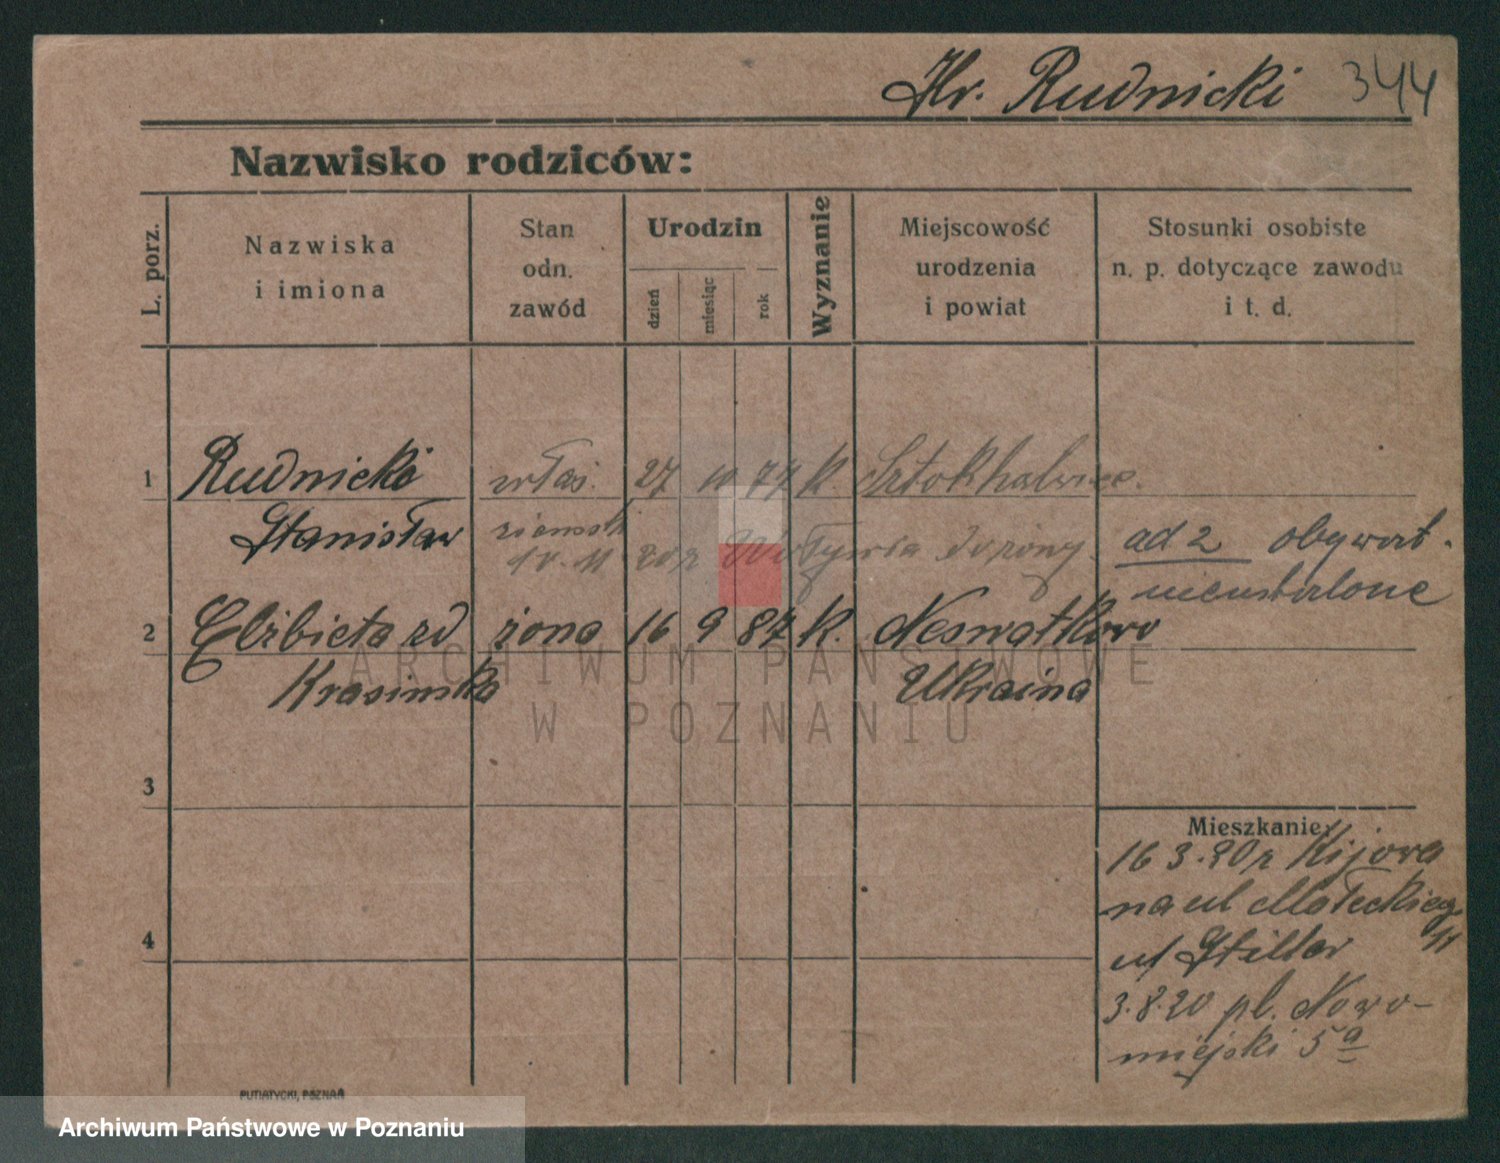 Hr. Rudnicki 344
Nazwisko rodziców:
L. porz.
Nazwiska
i imiona
Stan
odn.
zawód
Urodzin
dzień
miesiąc
rok
Wyznanie
Miejscowość
urodzenia
i powiat
Stosunki osobiste
n. p. dotyczące zawodu
i t. d.
1 Rudnicki właś. 27 10 77 k.
Stanisław
ad 2 obywat.
2 Elżbieta zd żona 16 9 87 k.
Ukraina
3
4
Mieszkanie
16 3. 20 z Kijowa
na ul
3.8.20 pl. Nowo-
miejski 5a
PUTIATYCKI, POZNAŃ
ARCHIWUM PAŃSTWOWE
W POZNANIU
Archiwum Państwowe w Poznaniu